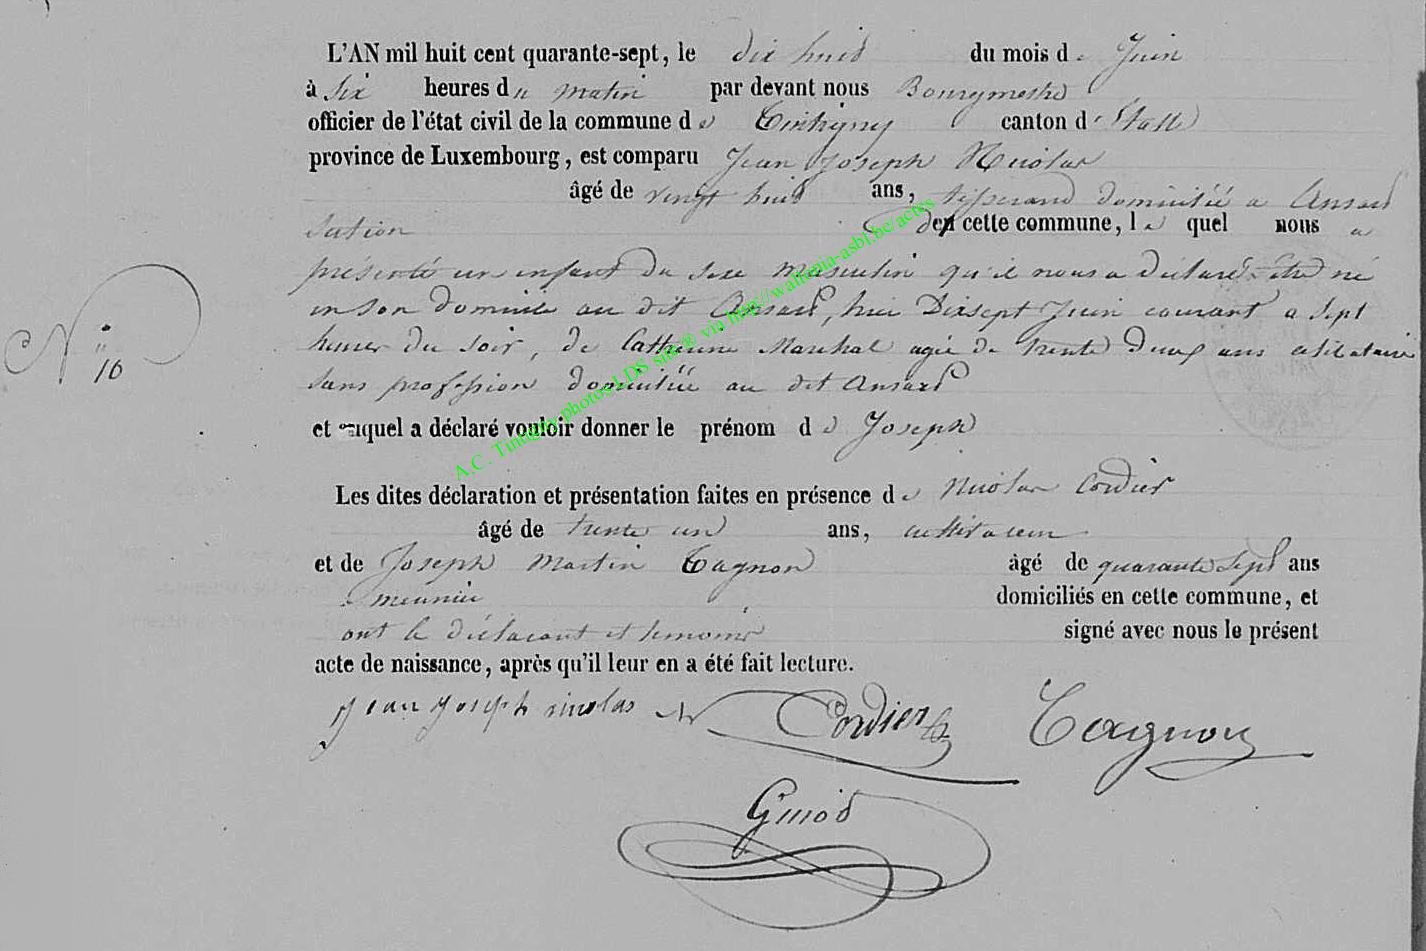 L'AN mil huit cent quarante-sept, le dix huid du mois de Juin
à Six heures du matin par devant nous Bourgmestre
officier de l'état civil de la commune de Tintigny canton d'Etalle
province de Luxembourg, est comparu Jean Joseph Nicolas
âgé de vingt huid ans, tisserand domicilié a Ansard
section de cette commune, le quel nous a
présenté un enfant du sexe masculin qu'il nous a déclaré être né
en son domicile au dit Ansard, hier Dixsept Juin courant a Sept
heures du soir, de Catherine Marchal agée de trente deux ans célibataire
sans profession domiciliée au dit Ansard
et auquel a déclaré vouloir donner le prénom de Joseph
N° 16
Les dites déclaration et présentation faites en présence de Nicolas Cordier
âgé de trente un ans, cultivateur
et de Joseph Martin Tagnon âgé de quarante Sept ans
meunier domiciliés en cette commune, et
ont le déclarant et temoins signé avec nous le présent
acte de naissance, après qu'il leur en a été fait lecture.
Jean Joseph nicolas N Cordier Tagnon
A.C. Tintigny photos LDS site ® via http://wallonia-asbl.be/actes